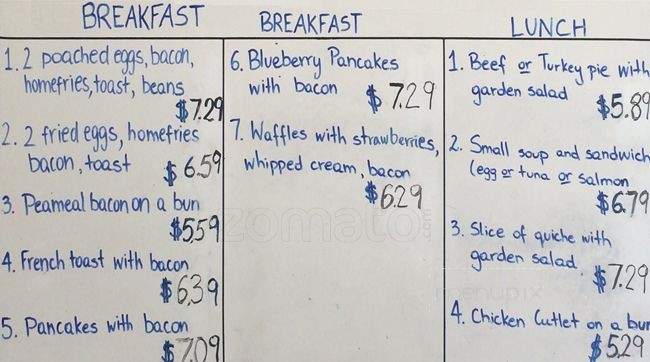 BREAKFAST
1. 2 poached eggs, bacon,
homefries, toast, beans
$7.29
2. 2 fried eggs, homefries
bacon, toast $6.59
3. Peameal bacon on a bun
$5.59
4. French toast with bacon
$6.39
5. Pancakes with bacon
$7.09
BREAKFAST
6. Blueberry Pancakes
with bacon $7.29
7. Waffles with strawberries,
whipped cream, bacon
$6.29
LUNCH
1. Beef or Turkey pie with
garden salad $5.89
2. Small soup and sandwich
(egg or tuna or salmon
$6.79
3. Slice of quiche with
garden salad. $7.29
4. Chicken Cutlet on a bun
$5.29
zomato.com
menupix